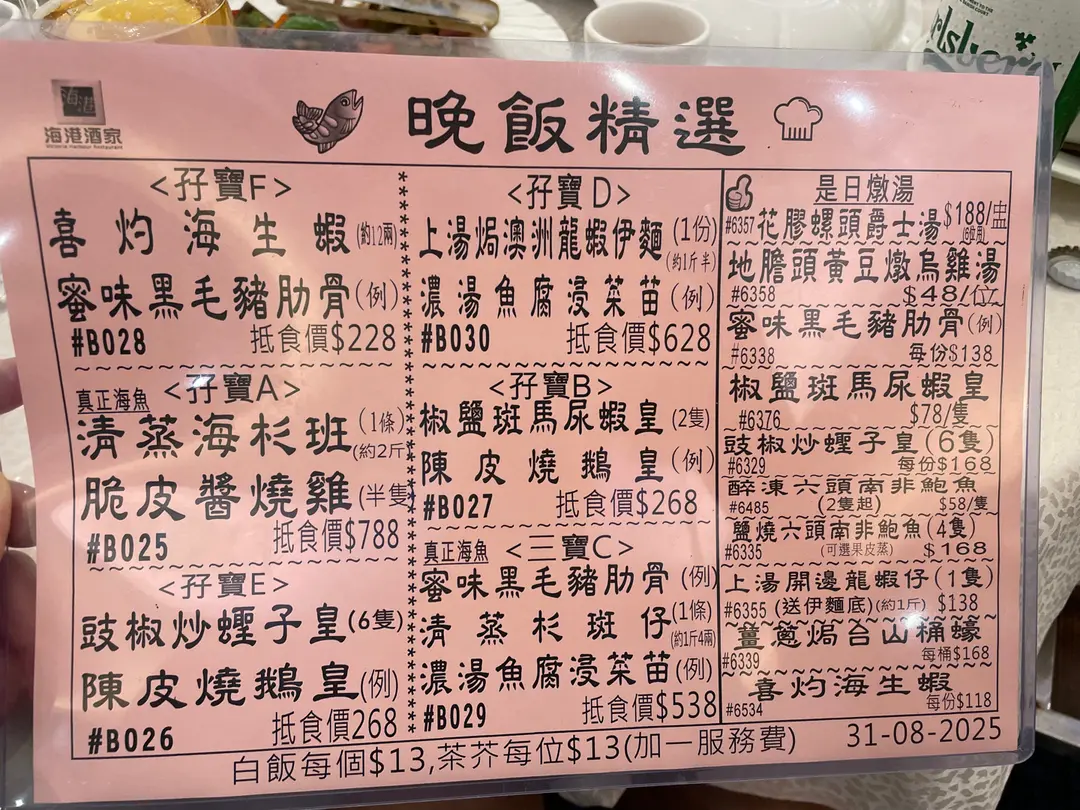 海港酒家
Victoria Harbour Restaurant
晚飯精選
<孖寶F>
喜灼海生蝦(約12兩)
蜜味黑毛豬肋骨(例)
#B028 抵食價$228
真正海魚 <孖寶A>
清蒸海杉班(1條)(約2斤)
脆皮醬燒雞(半隻)
#B025 抵食價$788
<孖寶E>
豉椒炒蟶子皇(6隻)
陳皮燒鵝皇(例)
#B026 抵食價268
<孖寶D>
上湯焗澳洲龍蝦伊麵(1份)(約1斤半)
濃湯魚腐浸菜苗(例)
#B030 抵食價$628
<孖寶B>
椒鹽斑馬尿蝦皇(2隻)
陳皮燒鵝皇(例)
#B027 抵食價$268
真正海魚 <三寶C>
蜜味黑毛豬肋骨(例)
清蒸杉斑仔(1條)(約1斤4兩)
濃湯魚腐浸菜苗(例)
#B029 抵食價$538
是日燉湯
#6357 花膠螺頭爵士湯 $188/盅
地膽頭黃豆燉烏雞湯
#6358 $48/位
蜜味黑毛豬肋骨(例)
#6338 每份$138
椒鹽斑馬尿蝦皇
#6376 $78/隻
豉椒炒蟶子皇(6隻)
#6329 每份$168
醉凍六頭南非鮑魚
#6485 (2隻起) $58/隻
鹽燒六頭南非鮑魚(4隻)
#6335 (可選果皮蒸) $168
上湯開邊龍蝦仔(1隻)
#6355 (送伊麵底)(約1斤) $138
薑蔥焗台山桶蠔
#6339 每桶$168
喜灼海生蝦
#6534 每份$118
白飯每個$13,茶芥每位$13(加一服務費) 31-08-2025